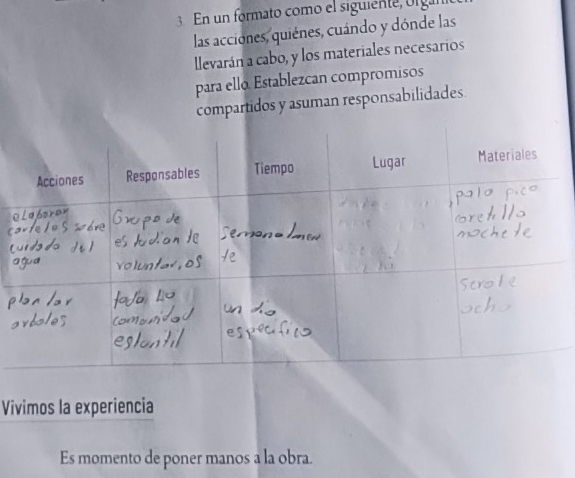 3. En un formato como el siguiente,
las acciones, quiénes, cuándo y dónde las
llevarán a cabo, y los materiales necesarios
para ello. Establezcan compromisos
compartidos y asuman responsabilidades.
Acciones Responsables Tiempo Lugar Materiales
elaboran carteles sobre cuidado del agua
Grupo de estudiante voluntarios
semanalmente
pala pico
caretilla
machete
plantar
arboles
toda la
comunidad
estantil
un dia
especifico
Vivimos la experiencia
Es momento de poner manos a la obra.